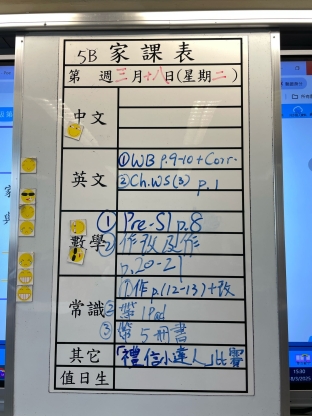 5B 家課表
第 週三月十八日(星期二)
中文
英文
①WB p.9-10 + Corr.
②Ch.WS(3) p.1
數學
①Pre-S1 p.8
②作改及作
p.20-21
常識
①作p.(12-13)+改
②帶iPad
③帶第5冊書
其它
「禮信小達人」比賽
值日生
15:30
18/3/2025